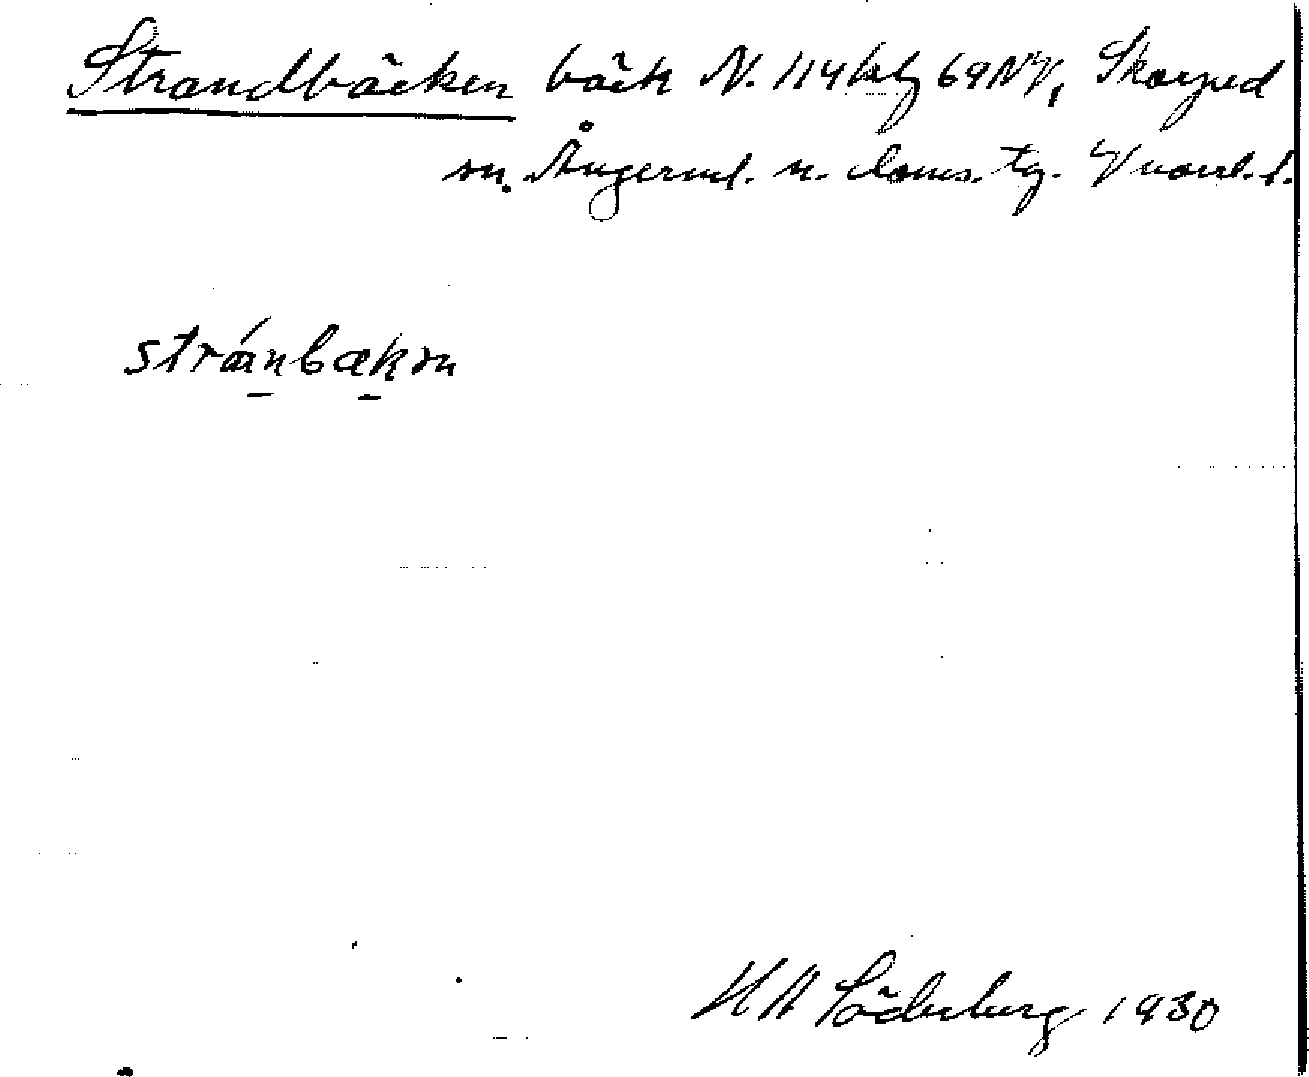 Strandbäcken bäck N. 114 kbl 69NV, Skorped
sn. Ångerml. n. doms. tg. Vnorrl. l.
stránbækɳ
H A Söderberg 1930